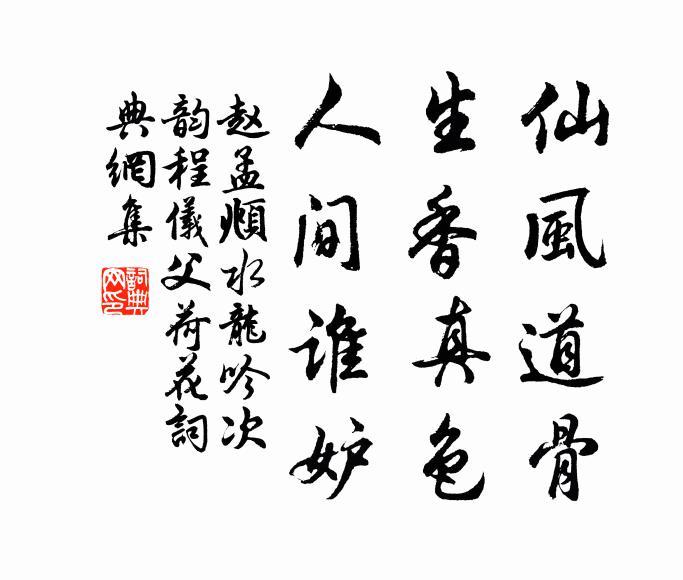 仙風道骨
生香真色
人间谁妒
赵孟頫水龍吟次
韵程儀父荷花詞
典網集
詞典
网印